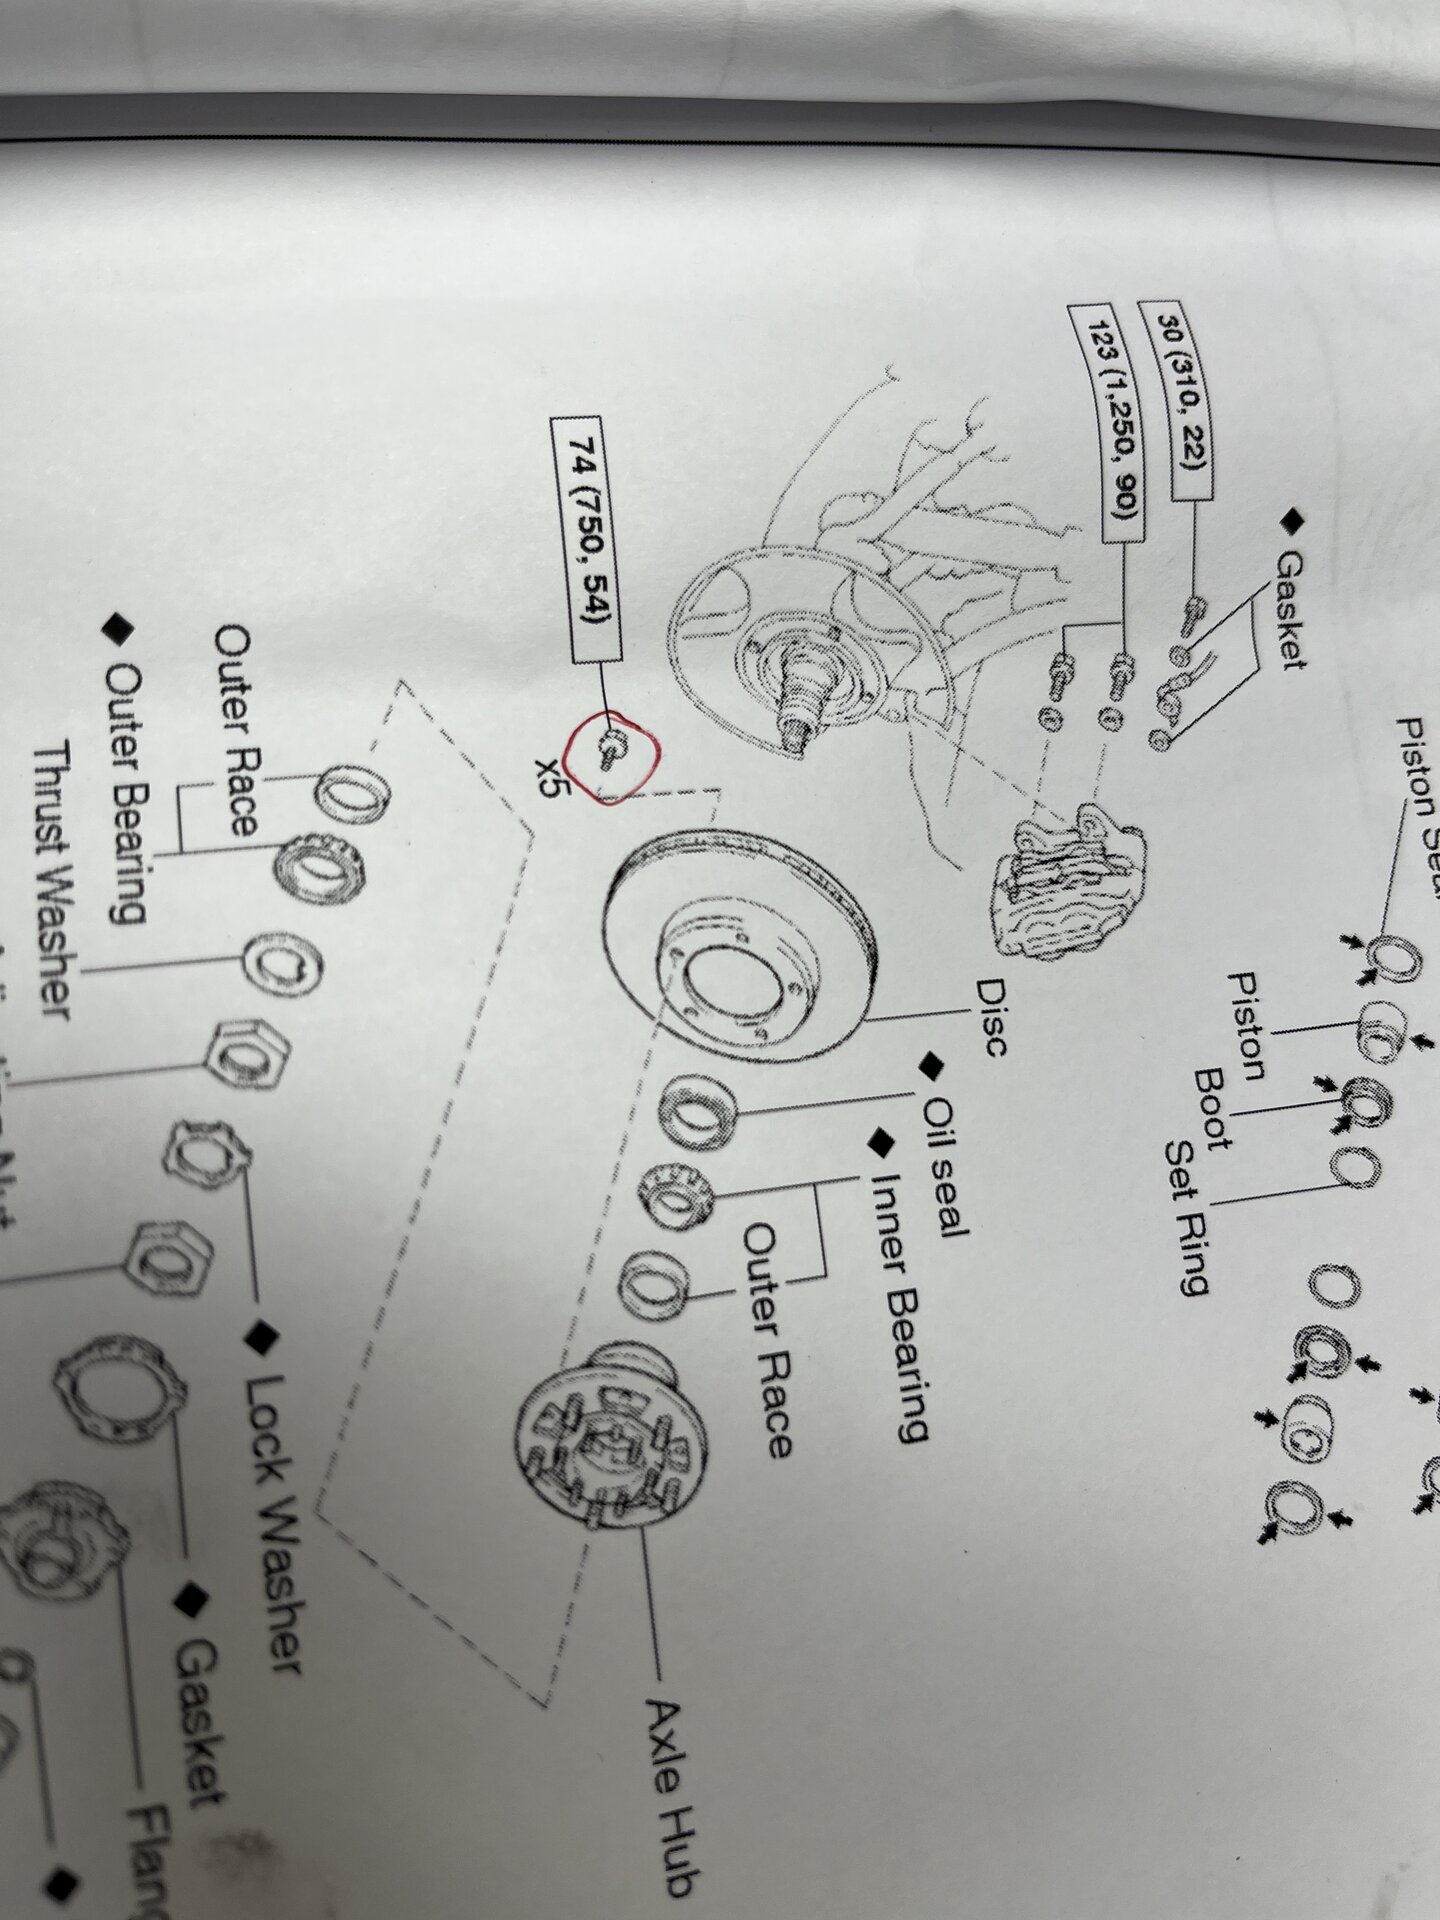 ◆ Gasket
30 (310, 22)
123 (1,250, 90)
74 (750, 54)
x5
Piston
Piston
Boot
Set Ring
Disc
◆ Oil seal
◆ Inner Bearing
Outer Race
Axle Hub
Outer Race
◆ Outer Bearing
Thrust Washer
◆ Lock Washer
◆ Gasket
◆